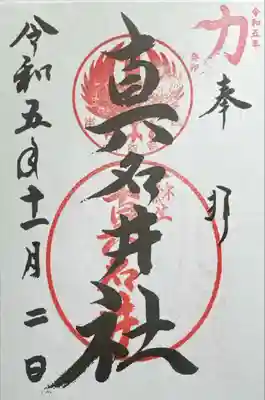 令和五年
力
奉拝
真名井社
令和五年十一月二日